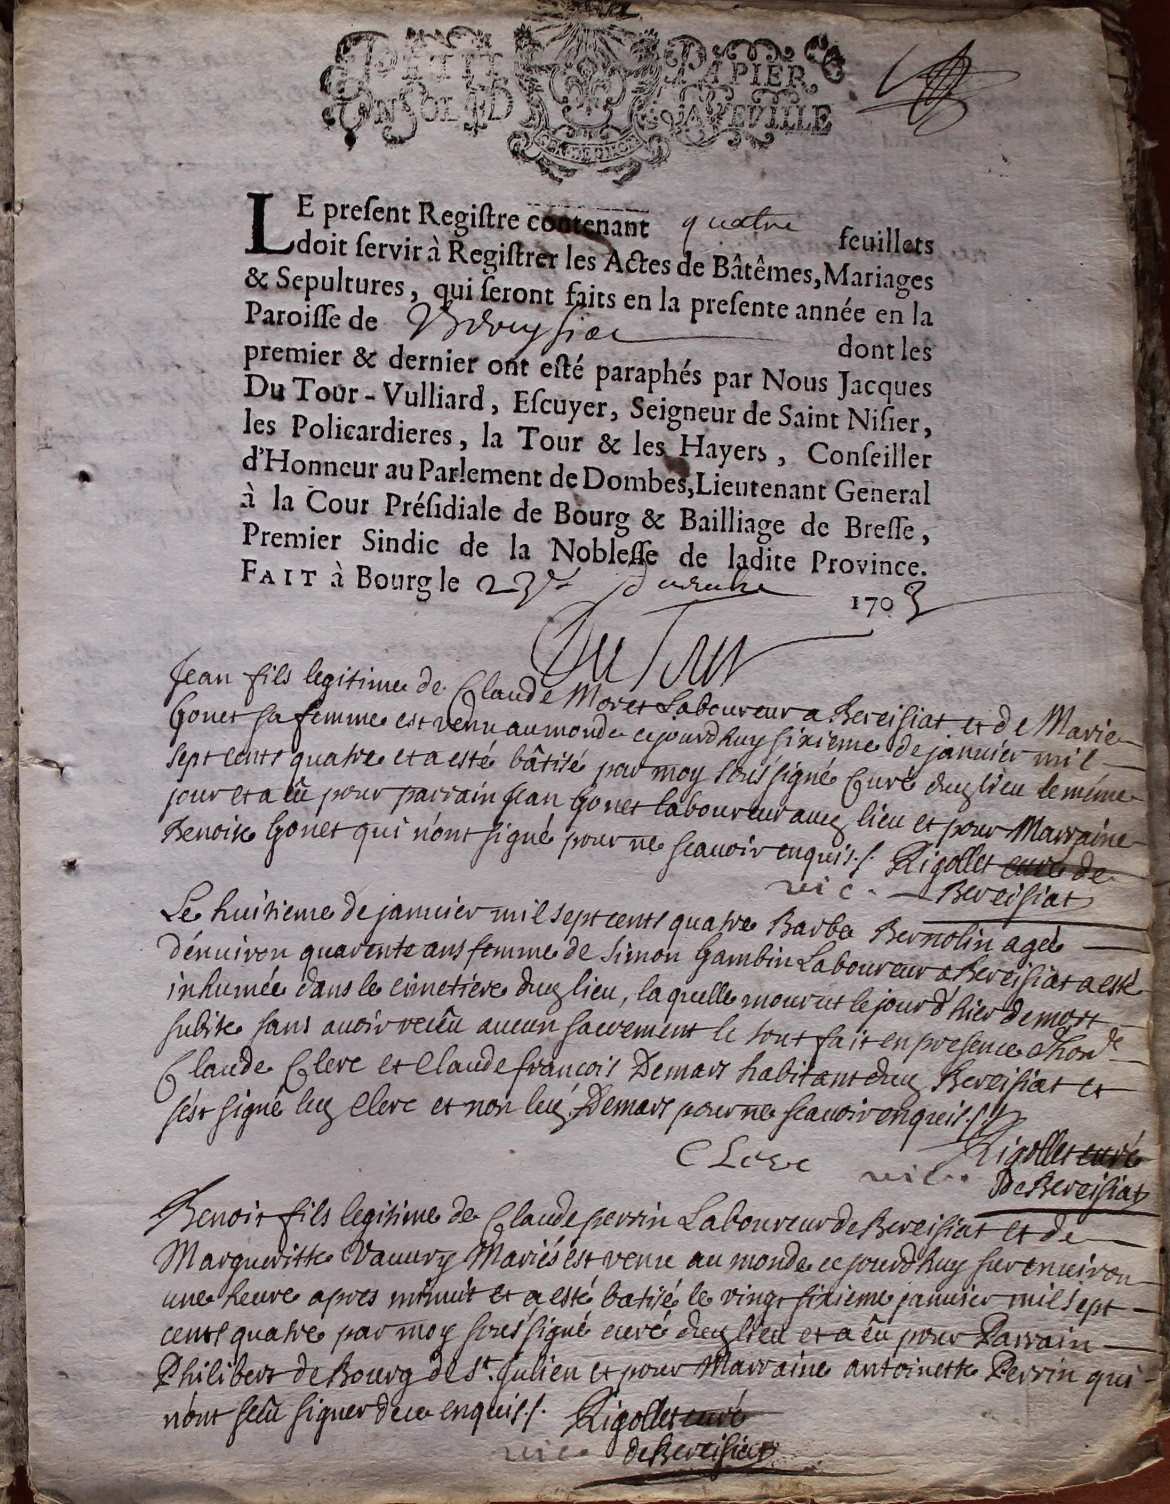 PETIT PAPIER
UN SOL LD LA FEUILLE
LE preſent Regiſtre contenant quatre feuillets
doit ſervir à Regiſtrer les Actes de Bâtêmes, Mariages
& Sepultures, qui ſeront faits en la preſente année en la
Paroiſſe de Bereysiat dont les
premier & dernier ont eſté paraphés par Nous Jacques
Du Tour-Vulliard, Eſcuyer, Seigneur de Saint Niſier,
les Policardieres, la Tour & les Hayers, Conſeiller
d'Honneur au Parlement de Dombes, Lieutenant General
à la Cour Préſidiale de Bourg & Bailliage de Breſſe,
Premier Sindic de la Nobleſſe de ladite Province.
FAIT à Bourg le 23e 1703
Du Tour
Jean fils legitime de Claude Moret Laboureur a Bereisiat et de Marie
Gonet sa femme est venu au monde cejourdhuy sixieme de janvier mil
sept cents quatre et a esté bâtisé par moy soussigné Curé dud lieu le meme
jour et a eû pour parrain Jean Gonet laboureur aud lieu et pour Marraine
Benoite Gonet qui n'ont signé pour ne scavoir enquis ./. Rigollet curé de
vic. Bereisiat
Le huitieme de janvier mil sept cents quatre Barbe Bernolin agée
d'environ quarente ans femme de Simon Gambin Laboureur a Bereisiat a esté
inhumée dans le cimetiere dud lieu, laquelle mourut le jour d'hier de mort
subite sans avoir receû aucun sacrement le tout fait en presence d'hon.le
Claude Clerc et Claude françois Demars habitant dud Bereisiat et
s'est signé led Clerc et non led Demars pour ne scavoir enquis ./.
CLerc vic. Rigollet curé
De Bereisiat
Benoit fils legitime de Claude perrin Laboureur de Bereisiat et de
Margueritte Vauury Mariés est venu au monde cejourdhuy sur environ
une heure apres minuit et a esté batisé le vingt sixieme janvier mil sept
cents quatre par moy soussigné curé dud lieu et a eû pour Parrain
Philibert de Bourg de St. Julien et pour Marraine antoinette Perrin qui
n'ont sceû signer de ce enquis ./. Rigollet curé
vic. de Bereisiat